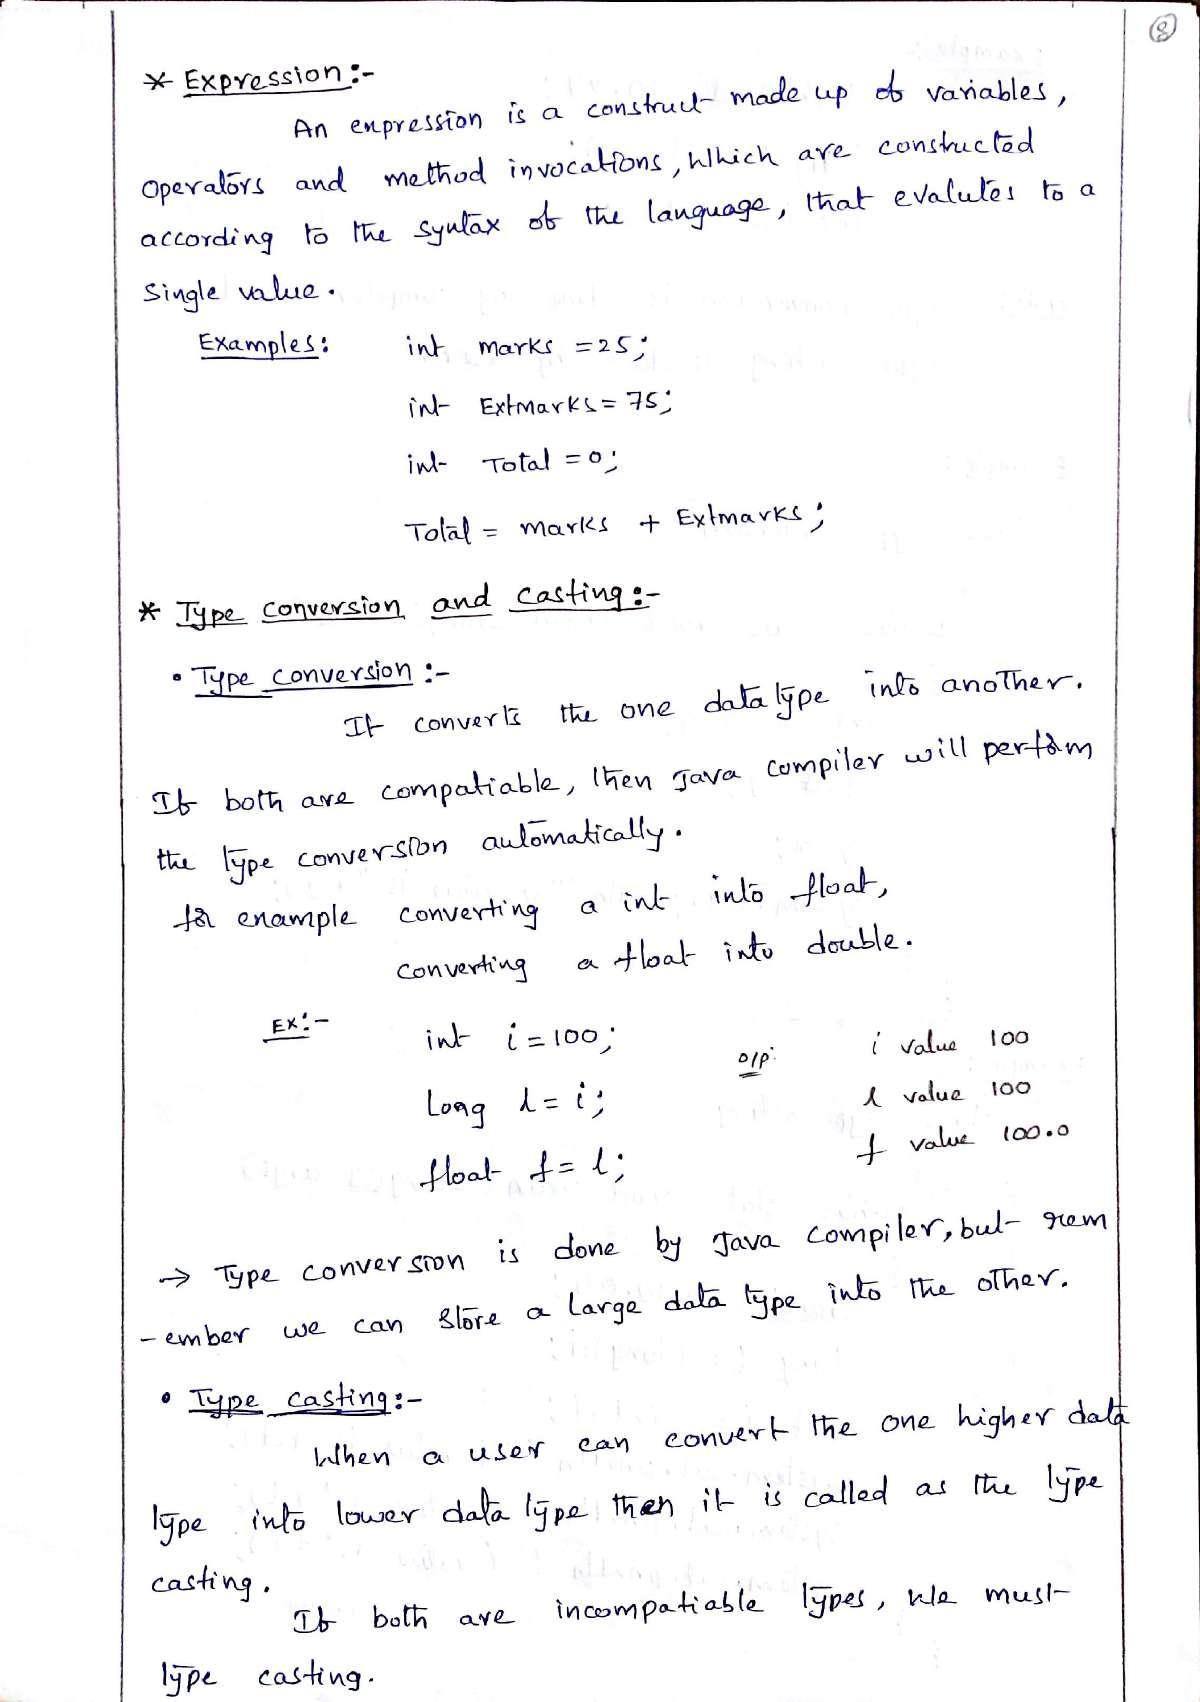 8
* Expression :-
An expression is a construct made up of variables,
operators and method invocations, which are constructed
according to the syntax of the language, that evalutes to a
single value.
Examples: int marks = 25;
int Extmarks = 75;
int Total = 0;
Total = marks + Extmarks;
* Type conversion and casting :-
• Type conversion :-
It converts the one data type into another.
If both are compatiable, then Java compiler will perform
the type conversion automatically.
for example converting a int into float,
converting a float into double.
Ex:- int i = 100; o/p: i value 100
Long l = i; l value 100
float f = l; f value 100.0
→ Type conversion is done by Java compiler, but rem
-ember we can store a large data type into the other.
• Type casting :-
When a user can convert the one higher data
type into lower data type then it is called as the type
casting.
If both are incompatiable types, we must
type casting.